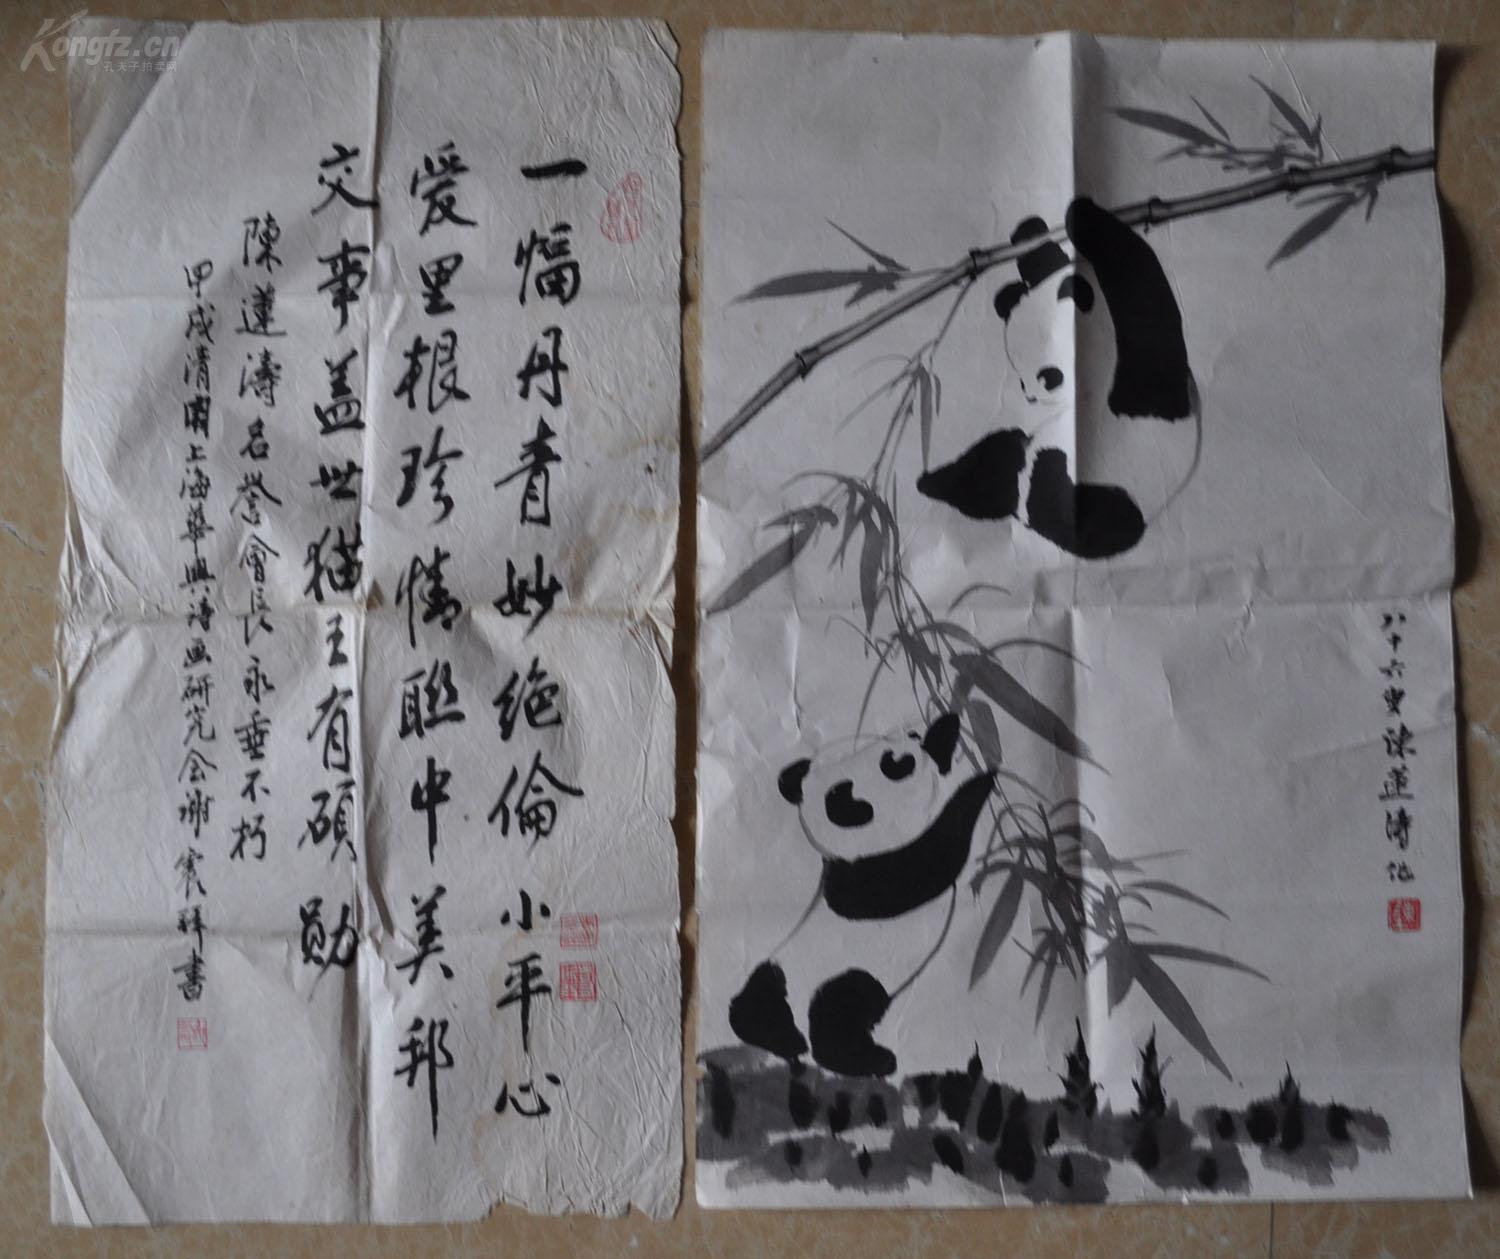 Kongfz.cn
孔夫子拍卖网
一幅丹青妙絕倫小平心
爱里根珍情聯中美邦
交事盖世猫王有碩勛
陳蓮濤名誉會長永垂不朽
甲戌清明上海華興诗画研究会谢震拜書
八十六叟陳蓮濤作